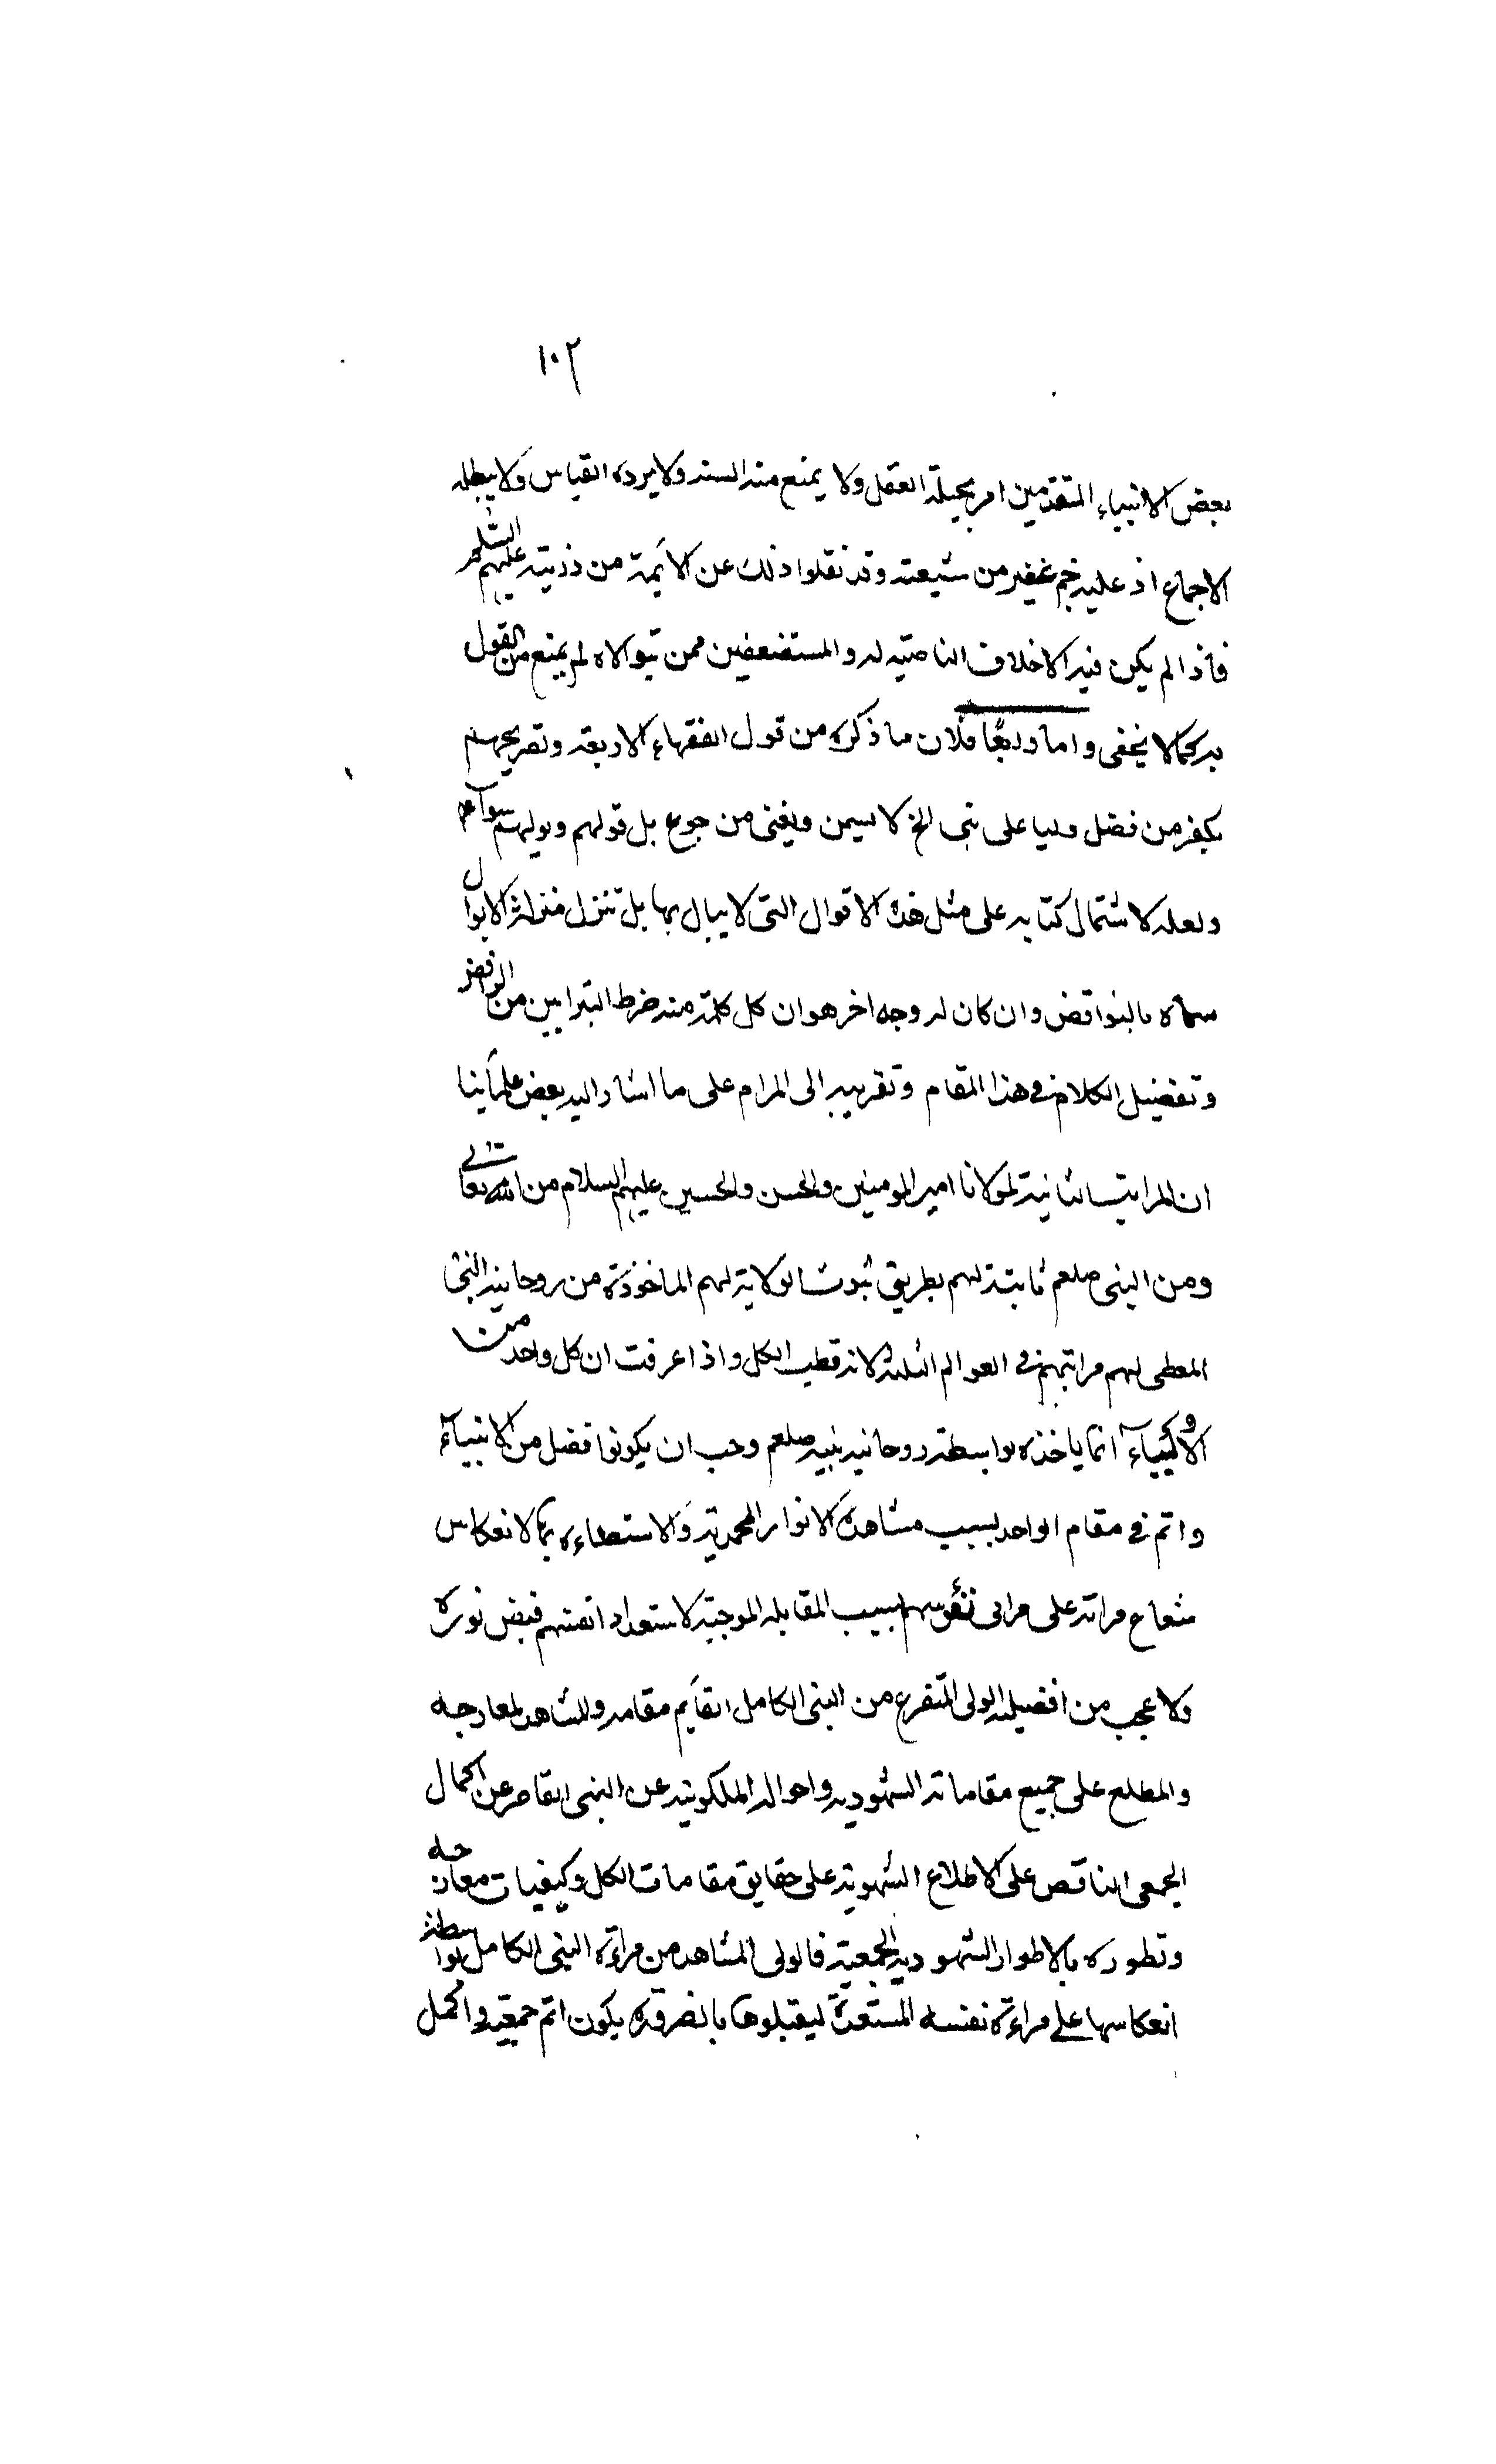 ١٠٢
بعض الانبياء المتقدمين امر يحيله العقل ولا يمنع منه السنه ولا يرده القياس ولا يبطله
الاجماع اذ عليه جم غفير من شيعته وقد نقلوا ذلك عن الائمة من ذريته عليهم السلم
فاذا لم يكن فيه الا خلاف الناصبيه له والمستضعفين ممن تيوالاه لم يمنع من القول
به كما لا يخفى واما رابعًا فلان ما ذكره من قول الفقهاء الاربعة وتصريحهم
بكفر من فضل وليا على نبى الخ لا يسمن ويغنى من جوع بل قولهم وبولهم سوآء
ولعله لاشتمال كتابه على مثل هذه الاقوال التى لا يبال بها بل تنزل منزلة الابوال
سماه بالنواقض وان كان له وجه اخر هو ان كل كلمة منه ضرط التبرايين من الروافض
وتفضيل الكلام فى هذا المقام وتقريبه الى المرام على ما اشار اليه بعض علمآئنا
ان المراتب الثانية لمولانا امير المومنين والحسن والحسين عليهم السلام من الله تعالى
ومن النبى صلعم ثابتة لهم بطريق ثبوت الولاية لهم الماخوذة من روحانية النبى
المعطى لهم مراتبهم فى العوالم الثلثة لانه قطب الكل واذا عرفت ان كل واحد من
الاوليآء انما ياخذه بواسطة روحانيه نبيه صلعم وجب ان يكونوا فضل من الانبيآء
واتم فى مقام الواحد بسبب مشاهدة الانوار المحمدية والاستضاءه بها لانعكاس
شعاع مراته على مرائى نفوسهم بسبب المقابله الموجبة لاستعداد انفسهم فيض نوره
ولا عجب من افضيلة الولى المتفرع من النبى الكامل القآيم مقامه والمشاهد لمعارجه
والمطلع على جميع مقاماته الشهوديه واحواله الملكوتيه عن النبى القاصر عن اكمال
الجمعى الناقص على الاطلاع الشهوية على حقايق مقامات الكل وكيفيات معارجه
وتطوره بالاطوار الشهوديه الجمعية فالولى المشاهد من مراءة النبى الكامل بواسطة
انعكاسها على مراءة نفسه المستعدة ليقبلوها بالضروره يكون اتم جمعية واكمل